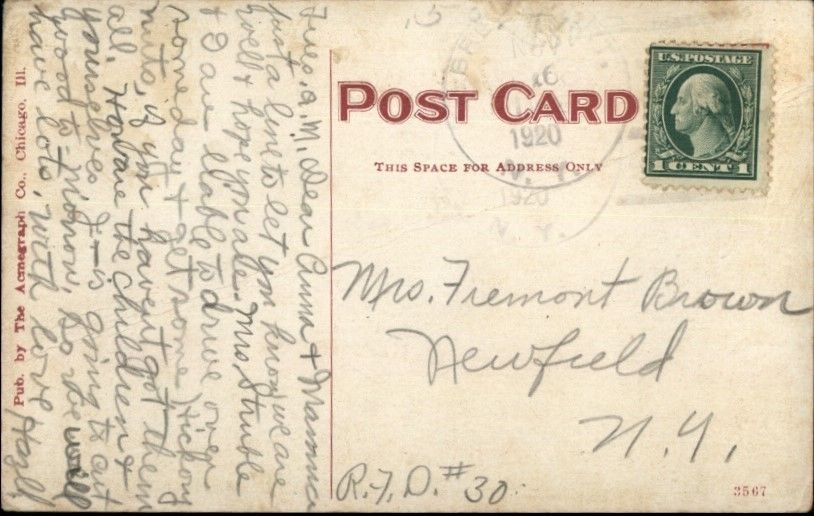 Tues. a.m. Dear Anna & Mamma
Just a line to let you know we are
well & hope you all. Mrs. Struble
& I are liable to drive over
someday & get some hickory
nuts, if you haven't got them
all. How are the children &
yourselves. J- is going to cut
wood to-morrow, so we will
have lots, with love Hazel
Pub. by The Acmegraph Co., Chicago, Ill.
POST CARD
THIS SPACE FOR ADDRESS ONLY
1920
N. Y.
1920
N. Y.
U.S. POSTAGE
1 CENT 1
Mrs. Fremont Brown
Newfield
N.Y.,
R.F.D. #30.
3567